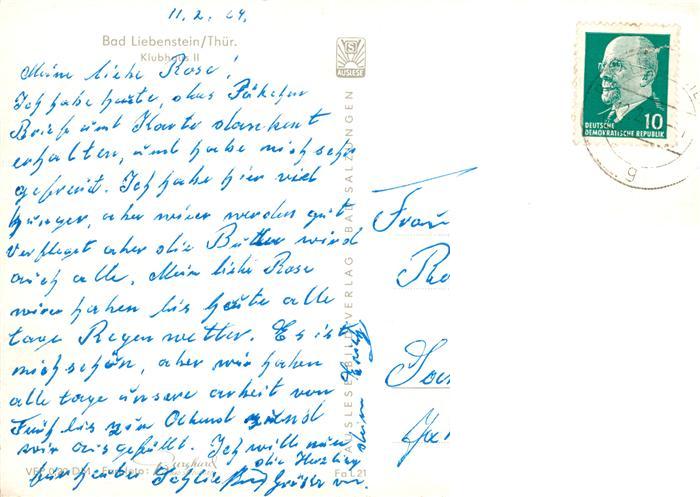 11.2.64.
Bad Liebenstein/Thür.
Klubhaus II
AUSLESE
Meine liebe Rose!
Ich habe heute, das Päkchen
Brief und Karte dankent
erhalten, und habe mich sehr
gefreut. Ich habe hier viel
hunger, aber wier werden gut
verpfleget aber die Butter wird
auch alle. Mein liebe Rose
wier haben bis heute alle
tage Regen wetter. Es ist
nich schön, aber wir haben
alle tage unsere arbeit von
Früh bis zum Obend und
wir ausgefüllt. Ich will nun
die Herzlig
Grüße von
deim Erich
AUSLESE-BILD-VERLAG BAD SALZUNGEN
Fo L21
DEUTSCHE
DEMOKRATISCHE REPUBLIK
10
g
Frau